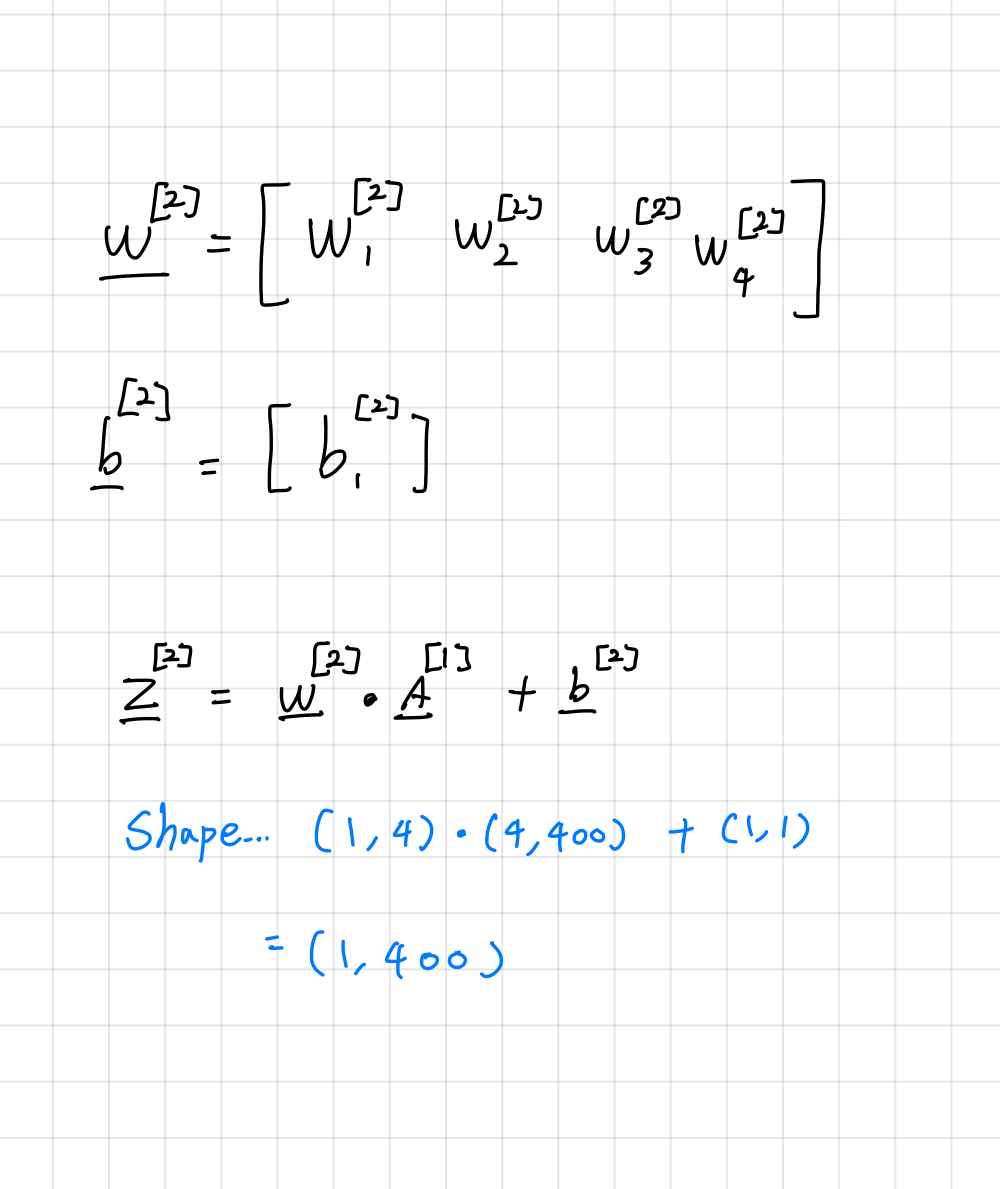 w^[2] = [ w_1^[2] w_2^[2] w_3^[2] w_4^[2] ]
b^[2] = [ b_1^[2] ]
Z^[2] = w^[2] · A^[1] + b^[2]
Shape... (1,4) · (4,400) + (1,1)
= (1,400)